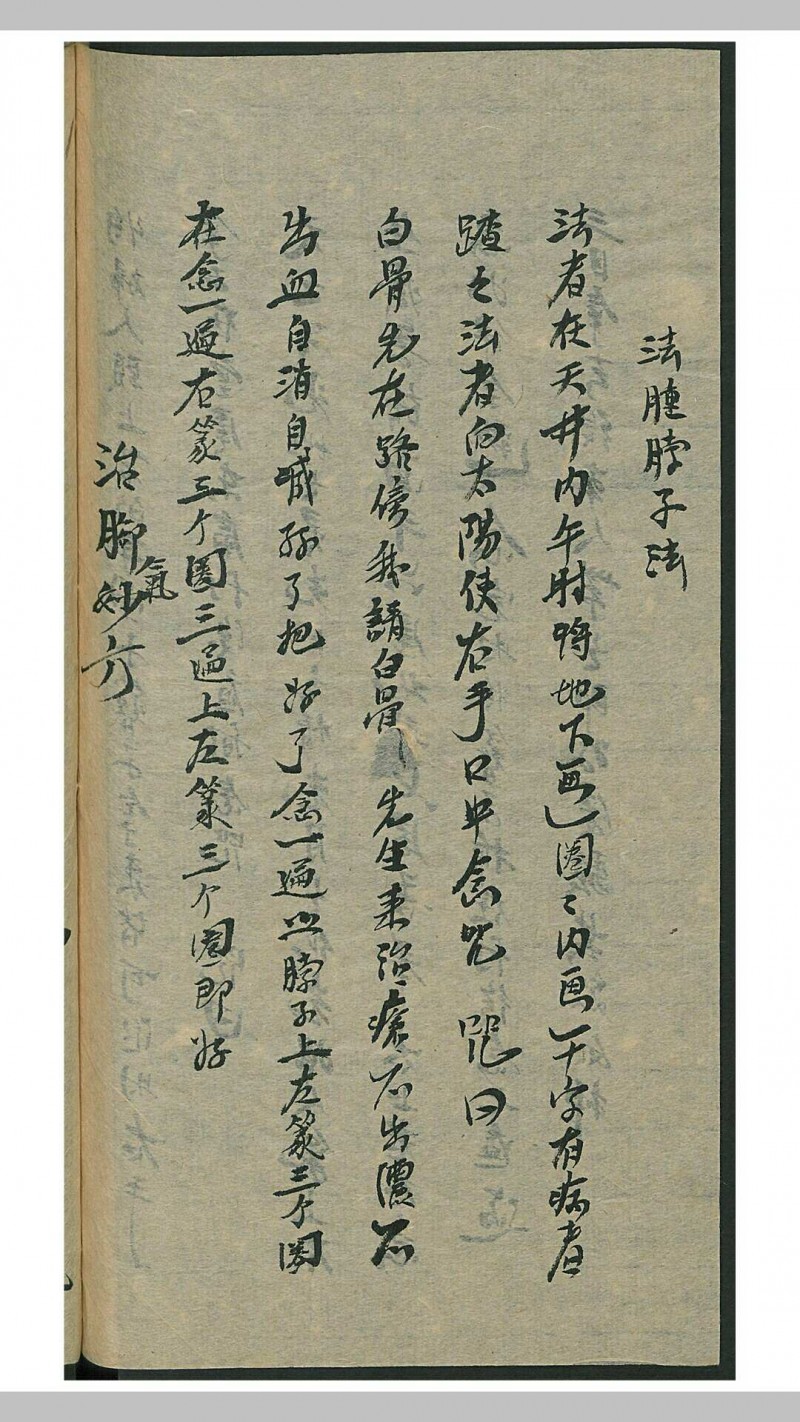 法腫脖子法
法者在天井內午时將地下画一圈〻內画一十字有病者
踏之法者向太陽使右手口中念咒 咒曰
白骨先在路傍我請白骨先生来治瘡不出濃不
出血自消自滅好了把好了念一遍照脖子上左篆三个圈
在念一遍右篆三个圈三遍上左篆三个圈即好
治脚氣妙方